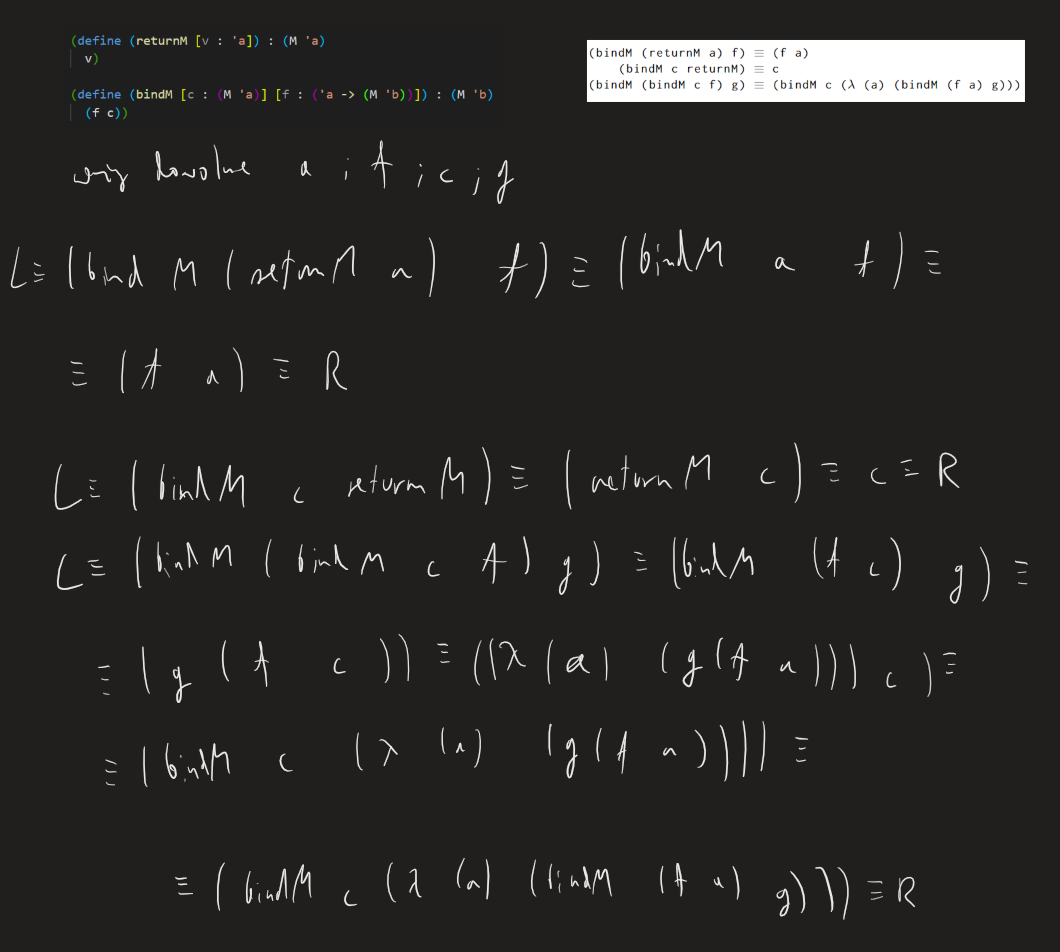 (define (returnM [v : 'a]) : (M 'a)
v)
(define (bindM [c : (M 'a)] [f : ('a -> (M 'b))]) : (M 'b)
(f c))
(bindM (returnM a) f) ≡ (f a)
(bindM c returnM) ≡ c
(bindM (bindM c f) g) ≡ (bindM c (λ (a) (bindM (f a) g)))
a ; f ; c ; g
L ≡ (bindM (returnM a) f) ≡ (bindM a f) ≡
≡ (f a) ≡ R
L ≡ (bindM c returnM) ≡ (returnM c) ≡ c ≡ R
L ≡ (bindM (bindM c f) g) ≡ (bindM (f c) g) ≡
≡ (g (f c)) ≡ ((λ (a) (g (f a))) c) ≡
≡ (bindM c (λ (a) (g (f a)))) ≡
≡ (bindM c (λ (a) (bindM (f a) g))) ≡ R